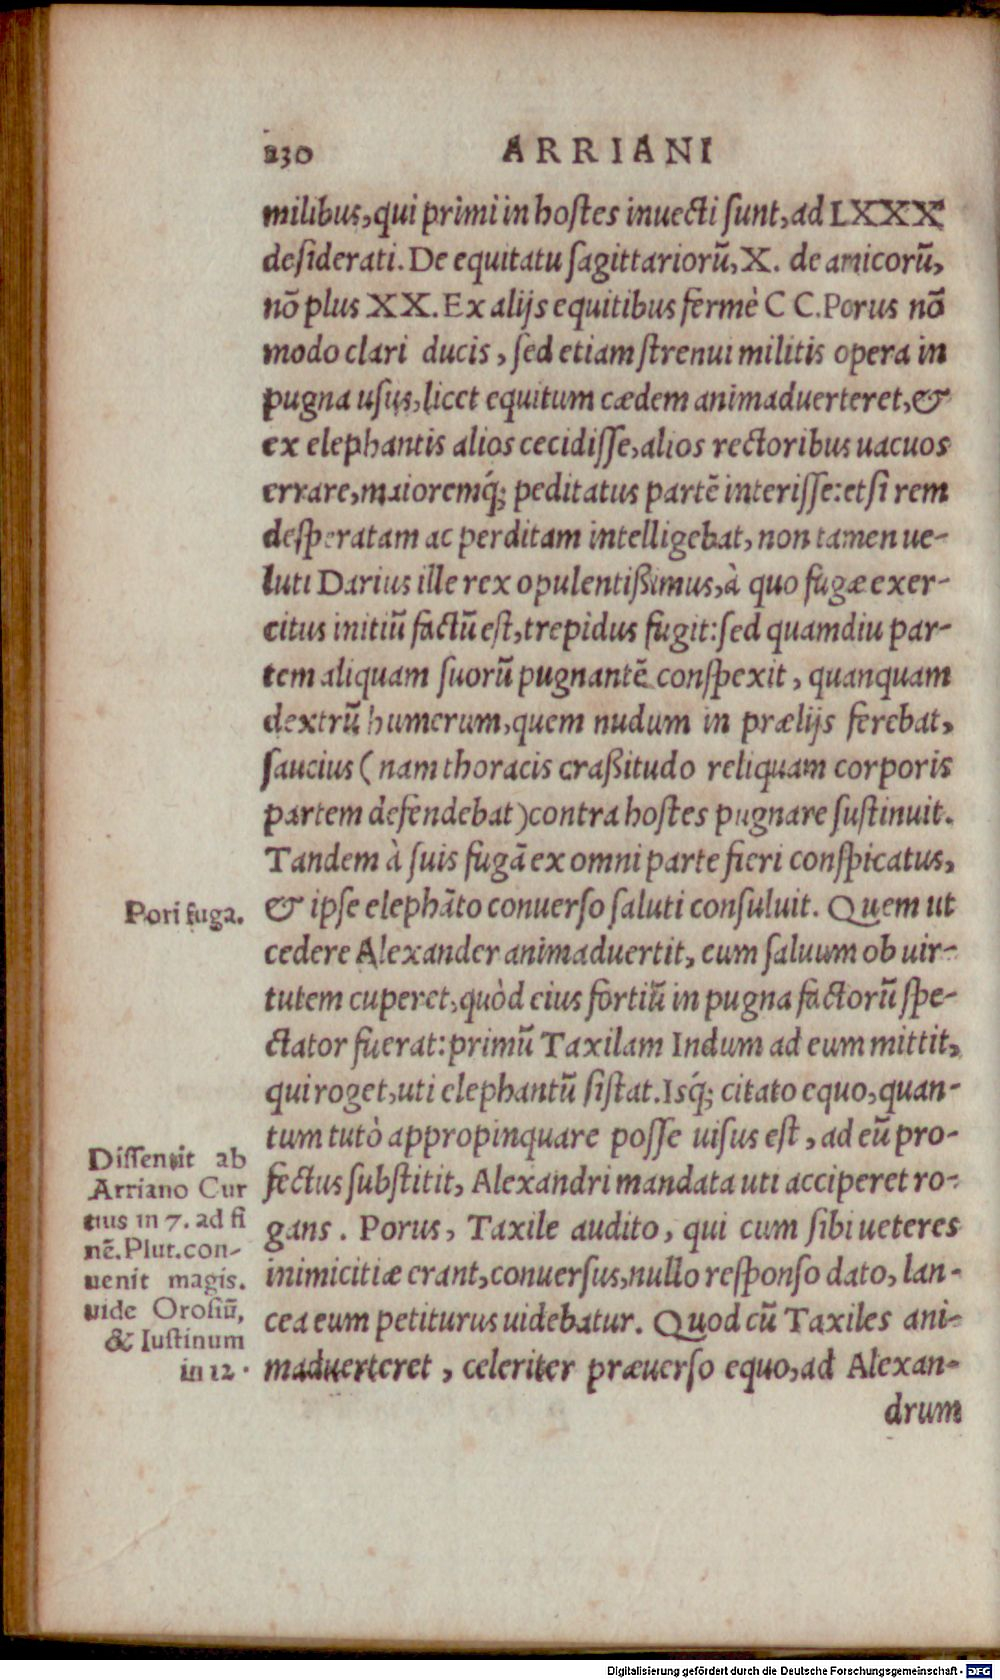 230 ARRIANI
milibus, qui primi in hostes inuecti sunt, ad LXXX
desiderati. De equitatu sagittariorũ, X. de amicorũ,
nõ plus XX. Ex alijs equitibus fermè C C. Porus nõ
modo clari ducis, sed etiam strenui militis opera in
pugna usus, licet equitum cædem animaduerteret, &
ex elephantis alios cecidisse, alios rectoribus uacuos
errare, maioremq́; peditatus partẽ interisse: etsi rem
desperatam ac perditam intelligebat, non tamen ue-
luti Darius ille rex opulentißimus, à quo fugæ exer-
citus initiũ factũ est, trepidus fugit: sed quamdiu par-
tem aliquam suorũ pugnantẽ conspexit, quanquam
dextrũ humerum, quem nudum in prælijs ferebat,
saucius ( nam thoracis craßitudo reliquam corporis
partem defendebat ) contra hostes pugnare sustinuit.
Tandem à suis fugã ex omni parte fieri conspicatus,
Pori fuga.
& ipse elephãto conuerso saluti consuluit. Quem ut
cedere Alexander animaduertit, eum saluum ob uir-
tutem cuperet, quòd eius fortiũ in pugna factorũ spe-
ctator fuerat: primũ Taxilam Indum ad eum mittit,
qui roget, uti elephantũ sistat. Isq́; citato equo, quan-
tum tutò appropinquare posse uisus est, ad eũ pro-
fectus substitit, Alexandri mandata uti acciperet ro-
gans. Porus, Taxile audito, qui cum sibi ueteres
inimicitiæ erant, conuersus, nullo responso dato, lan-
cea eum petiturus uidebatur. Quod cũ Taxiles ani-
maduerteret, celeriter præuerso equo, ad Alexan-
drum
Dissentit ab
Arriano Cur
tius in 7. ad fi
nẽ. Plut. con-
uenit magis.
uide Orosiũ,
& Iustinum
in 12.
Digitalisierung gefördert durch die Deutsche Forschungsgemeinschaft - DFG